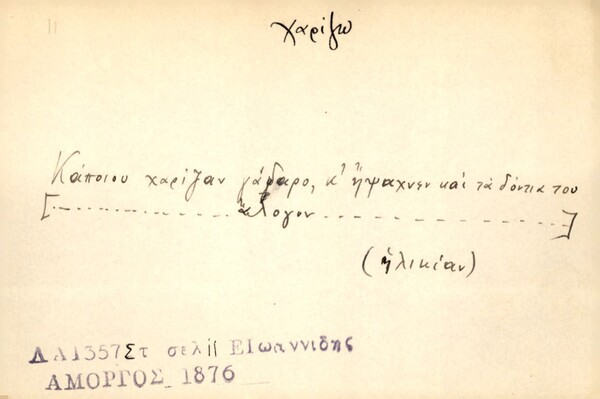 11
χαρίζω
Κάποιου χαρίζαν γάδαρο, κ' ἤψαχνεν καὶ τὰ δόντια του
[- - - - - - - ἄλογον - - - - - - - - - -]
(ἡλικίαν)
ΛΑ1357Στ σελ11 ΕΙωαννιδης
ΑΜΟΡΓΟΣ 1876